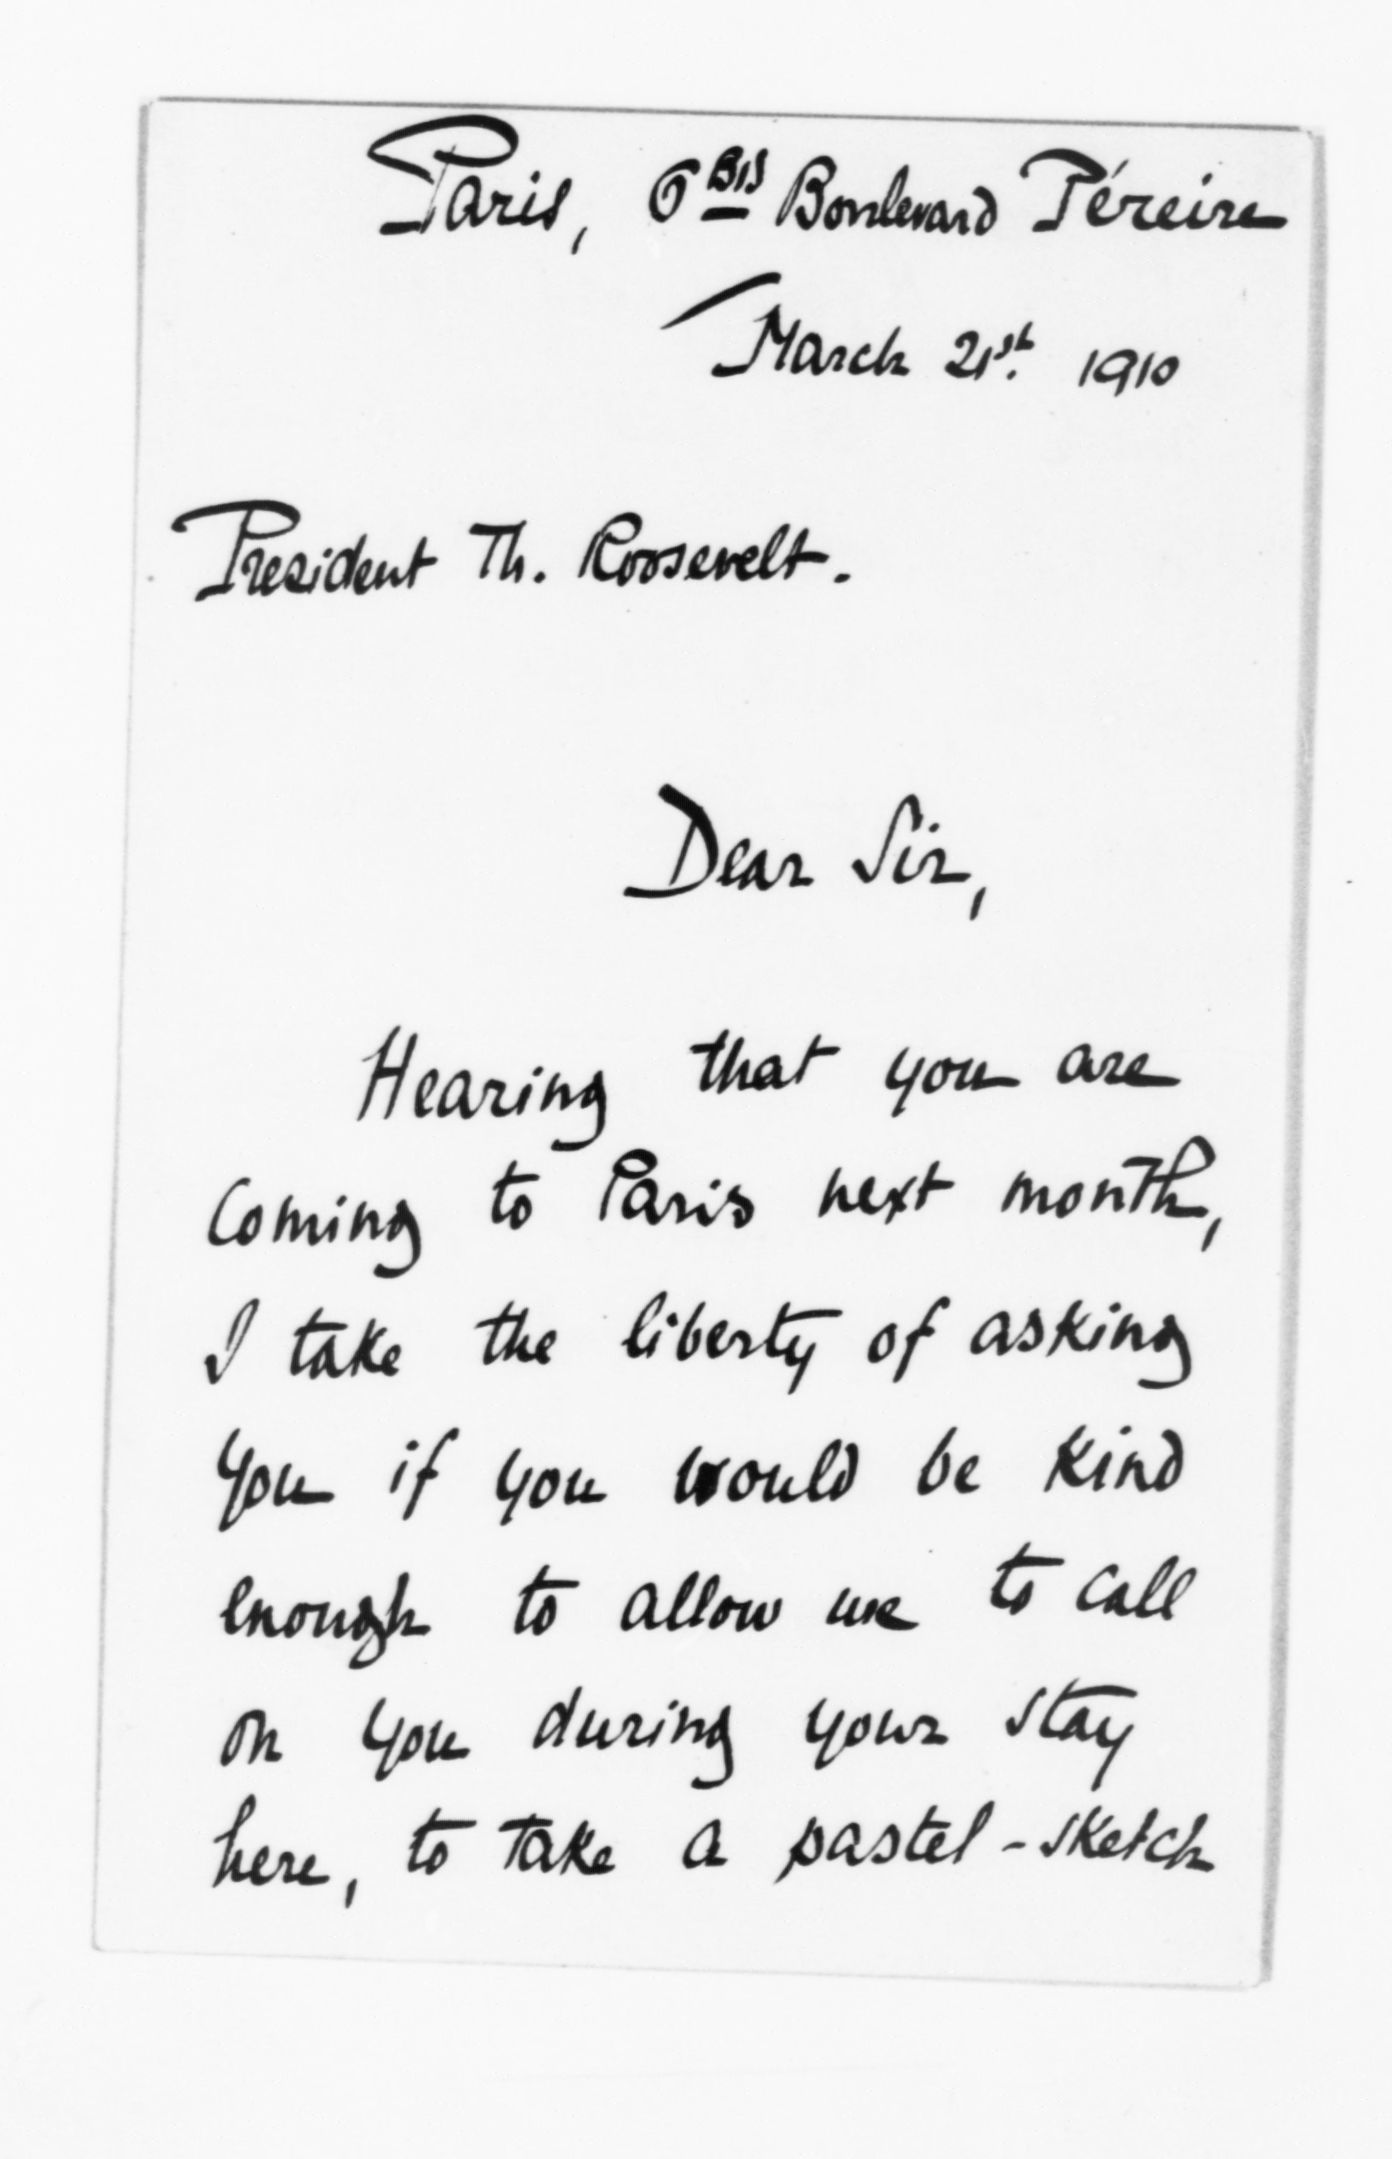 Paris, 6 BIS Boulevard Péreire
March 21st. 1910
President Th. Roosevelt.
Dear Sir,
Hearing that you are
coming to Paris next month,
I take the liberty of asking
you if you would be kind
enough to allow me to call
on you during your stay
here, to take a pastel-sketch